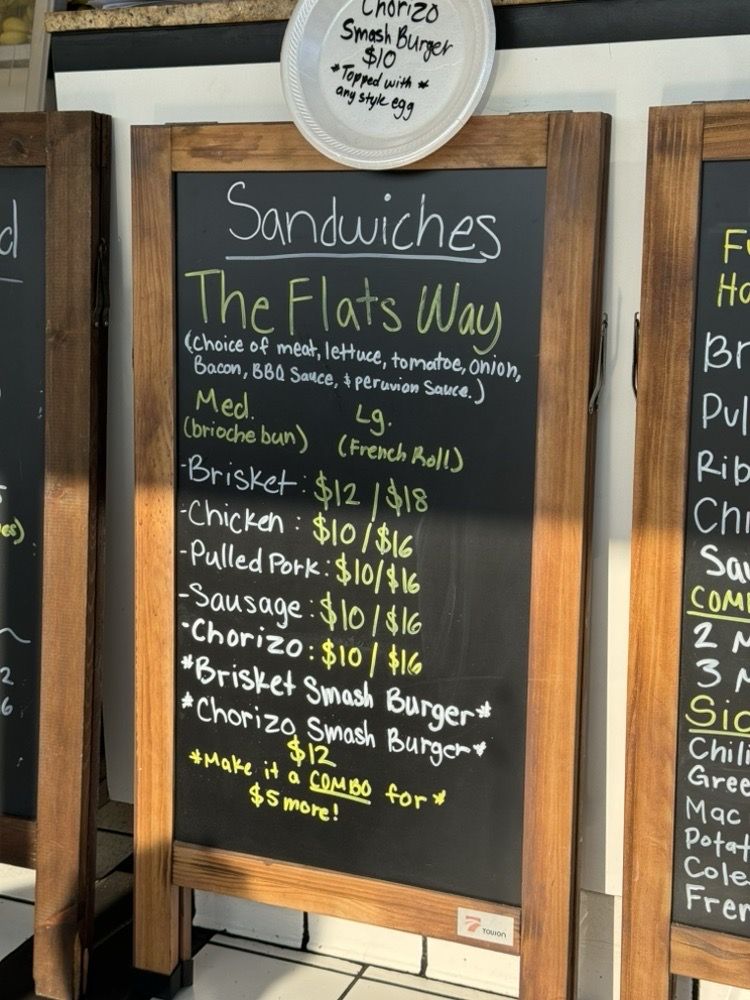 Chorizo
Smash Burger
$10
*Topped with*
any style egg
Sandwiches
The Flats Way
(Choice of meat, lettuce, tomatoe, onion,
Bacon, BBQ Sauce, & peruvian Sauce.)
Med. Lg.
(brioche bun) (French Roll)
-Brisket: $12 / $18
-Chicken: $10/$16
-Pulled Pork: $10/$16
-Sausage: $10/$16
-Chorizo: $10/$16
*Brisket Smash Burger*
*Chorizo Smash Burger*
$12
*Make it a COMBO for*
$5 more!
TOWON
d
es)
2
6
Fu
Ha
Br
Pul
Rib
Chi
Sau
COMB
2 M
3 M
Sid
Chili
Gree
Mac
Potat
Cole
Fren